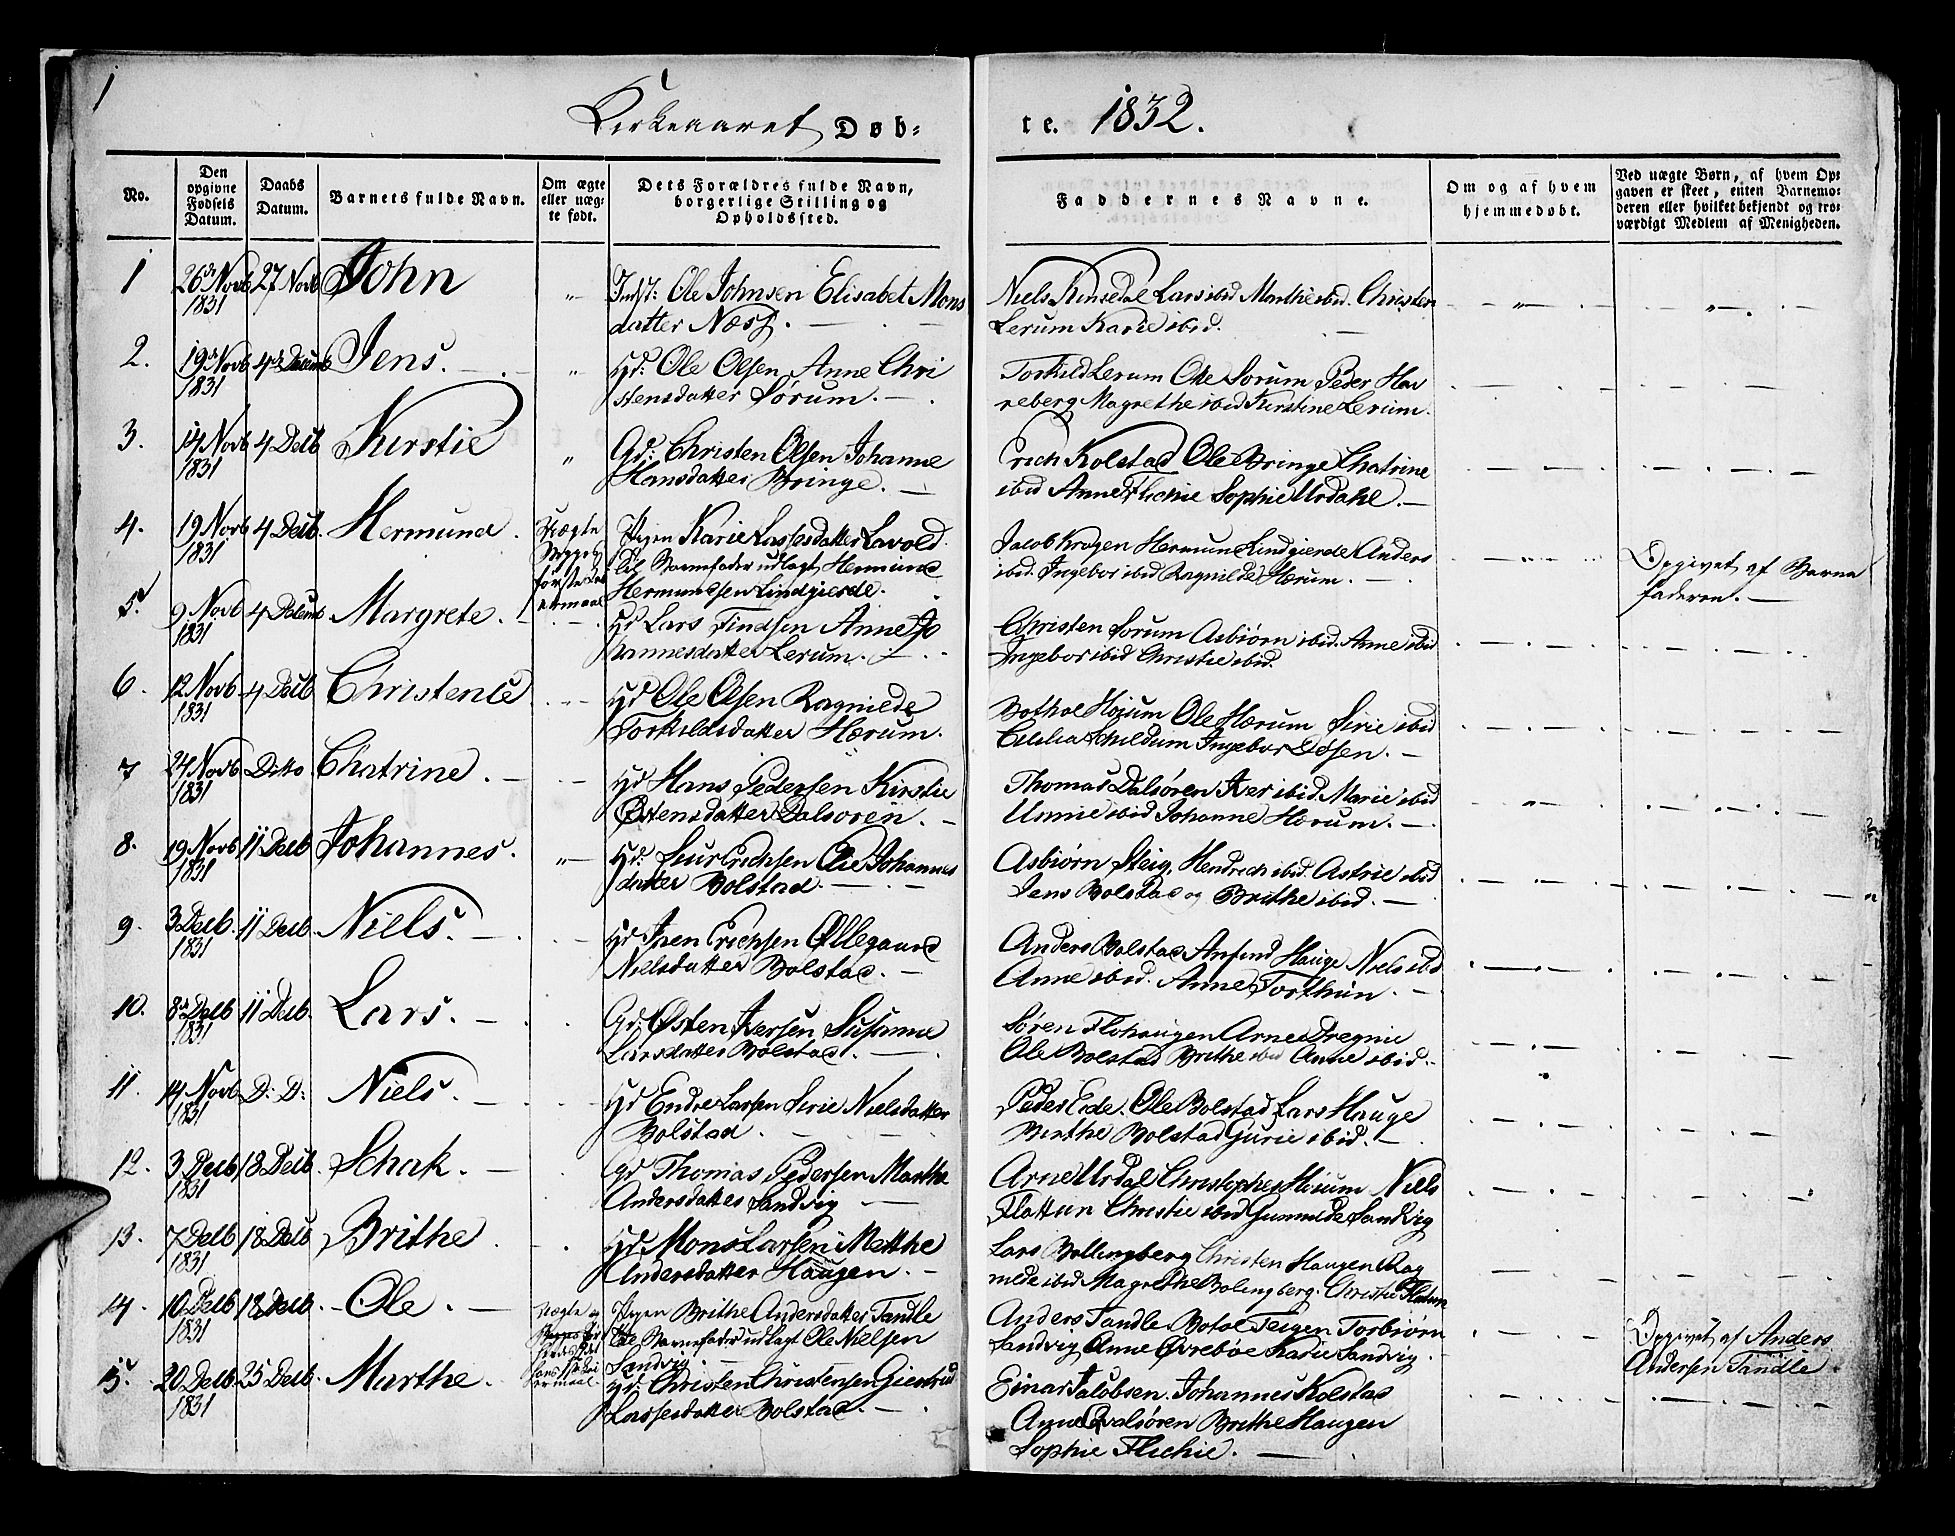 1
Kirkeaaret Døb-
te. 1832.
No.
Den opgivne Fødsels Datum.
Daabs Datum.
Barnets fulde Navn.
Om ægte eller uægte født.
Dets Forældres fulde Navn, borgerlige Stilling og Opholdssted.
Faddernes Navne.
Om og af hvem hjemmedøbt.
Ved uægte Børn, af hvem Opgaven er skeet, enten Barnemoderen eller hvilket bekjendt og troværdigt Medlem af Menigheden.
1 26de Novb 1831 27 Novb John
Inds: Ole Johnsen Elisabet Mons
datter Næss.
Niels Kinsedal Lars ibid Marthe ibid. Christen
Lerum Karie ibid.
2. 19de Novb 1831 4de Decemb Jens.
Hd: Ole Olsen Anne Chri
stensdatter Sørum.
Torkild Lerum Ole Sorum Peder Har
reberg Magrethe ibid Kirstine Lerum.
3. 14 Novb 1831 4 Decb Kirstie
Gd: Christen Olsen Johanne
Hansdatter Bringe.
Erich Kolstad Ole Bringe Chatrine
ibid Anne Flichie Sophie Urdahl.
4. 19 Novb 1831 4 Decb. Hermund.
Uægte
første
Pigen Karie Lassesdatter Lavold.
Barnefader udlagt Hermund
Hermundsen Lindgierde.
Jacob Krogen Hermun Lindgierde Anders
ibid. Ingebor ibid Ragnilde Hærum.
Opgivet af Barne
faderen.
5. 9 Novb 1831 4 Decemb Margrete.
Hd Lars Findsen Anne Jo
hannesdatter Lerum.
Christen Sorum Asbiørn ibid. Anne ibid
Ingebor ibid Christie ibid.
6. 12 Novb 1831 4 Decb. Christence
Hd Ole Olsen Ragnilde
Torkildsdatter Hærum.
Bothol Hojum Ole Hærum Sirie ibid
Cicilia Schildum Ingebor Eidsen.
7 24 Novb. 1831 Ditto. Chatrine.
Hd Hans Pedersen Kirstie
Østensdatter Dalsøren.
Thomas Dalsøren Iver ibid Marie ibid
Unnie ibid Johanne Hærum.
8. 19 Novb 1831 11 Decb Johannes.
Hd: Siur Erichsen Olie Johannes
datter Bolstad.
Asbiørn Steig, Hendrich ibid. Astrie ibid
Jens Bolstad og Brithe ibid.
9. 3 Decb. 1831 11 Decb Niels.
Hd Iven Erichsen Øllegaard
Nielsdatter Bolstad.
Anders Bolstad Anfind Hauge Niels ibid
Anne ibid. Anne Torthun.
10. 8de Decb 1831 11 Decb. Lars.
Gd Østen Iversen Susanne
Larsdatter Bolstad.
Søren Flohaugen Arne Dregnie
Ole Bolstad Brithe ibid Anne ibid.
11. 14 Novb 1831 D: D: Niels.
Hd Endre Larsen Sirie Nielsdatter
Bolstad.
Peder Eide. Ole Bolstad Lars Hauge
Birthe Bolstad Gurie ibid.
12. 3 Decb 1831 18 Decb. Schak.
Gd Thomas Pedersen Marthe
Andersdatter Sandvig
Arne Urdal Christopher Hoium Niels
Flattun Christie ibid Gunnilde Sandvig
13. 7 Decb 1831 18 Decb Brithe
Hd. Mons Larsen Metthe
Andersdatter Haugen.
Lars Bollingberg Christen Haugen Rag
nilde ibid Magrethe Bolingberg. Christie Flattun
14. 10 Decb 1831 18 Decb. Ole.
Uægte
Pigen Brithe Andersdatter Tandle
Barnefader udlagt Ole Nielsen
Sandvig.
Anders Tandle Botol Teigen Torbiørn
Sandvig Anne Øvreboe Karie Sandvig.
Opgivet af Anders
Andersen Tandle.
15. 20 Decb. 1831 25 Decb. Marthe.
Hd Christen Christensen Giertrud
Lassesdatter Bolstad.
Einar Jacobsen. Johannes Kolstad
Anne Dalsøren Brithe Haugen
Sophie Flichie.